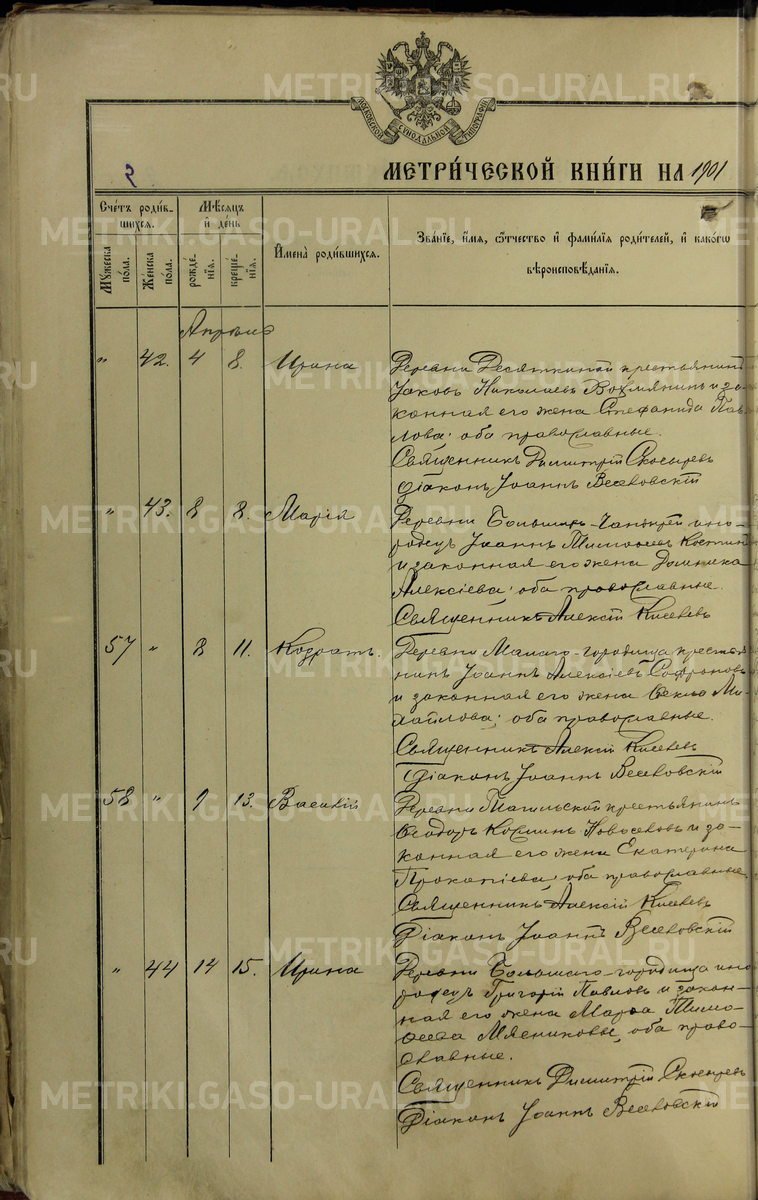 МОСКОВСКОЙ СИНОДАЛЬНОЙ ТИПОГРАФІИ
2
МЕТРИ́ЧЕСКОЙ КНИ́ГИ НА 1901
Сче́тъ роди́в-
шихся.
Му́жеска
по́ла.
Же́нска
по́ла.
Мѣ́сяцъ
и҆ де́нь
рожде́-
нїѧ.
креще́-
нїѧ.
И҆мена̀ роди́вшихсѧ.
Зва́нїе, и҆́мѧ, ѻ҆́тчество и҆ фами́лїѧ роди́телей, и҆ како́гѡ
вѣроисповѣ́данїѧ.
Апрѣль
" 42. 4 8. Ирина
Деревни Десяткиной крестьянинъ
Іаковъ Николаевъ Вохмянинъ и за-
конная его жена Стефанида Пав-
лова; оба православные.
Священникъ Димитрій Скосыревъ
Діаконъ Іоаннъ Весновскій
" 43. 8 8. Марія
Деревни ино-
родецъ Іоаннъ Тимоѳеевъ Костинъ
и законная его жена Домника
Алексіева; оба православные.
Священникъ Алексій Киселевъ
57 " 8 11. Кодратъ.
Деревни Малаго-городища крестья
нинъ Іоаннъ Алексіевъ Софроновъ
и законная его жена Ѳекла Ми-
хайлова; оба православные.
Священникъ Алексій Киселевъ
Діаконъ Іоаннъ Весновскій
58 " 9 13. Василій
Деревни Тагильской крестьянинъ
Ѳеодоръ Козминъ Новоселовъ и за-
конная его жена Екатерина
Прокопіева; оба православные.
Священникъ Алексій Киселевъ
Діаконъ Іоаннъ Весновскій
" 44 14 15. Ирина
Деревни Большаго-городища ино-
родецъ Григорій Павловъ и закон-
ная его жена Марѳа Тимо-
ѳеева Мясниковы, оба право-
славные.
Священникъ Димитрій Скосыревъ
Діаконъ Іоаннъ Весновскій
METRIKI.GASO-URAL.RU